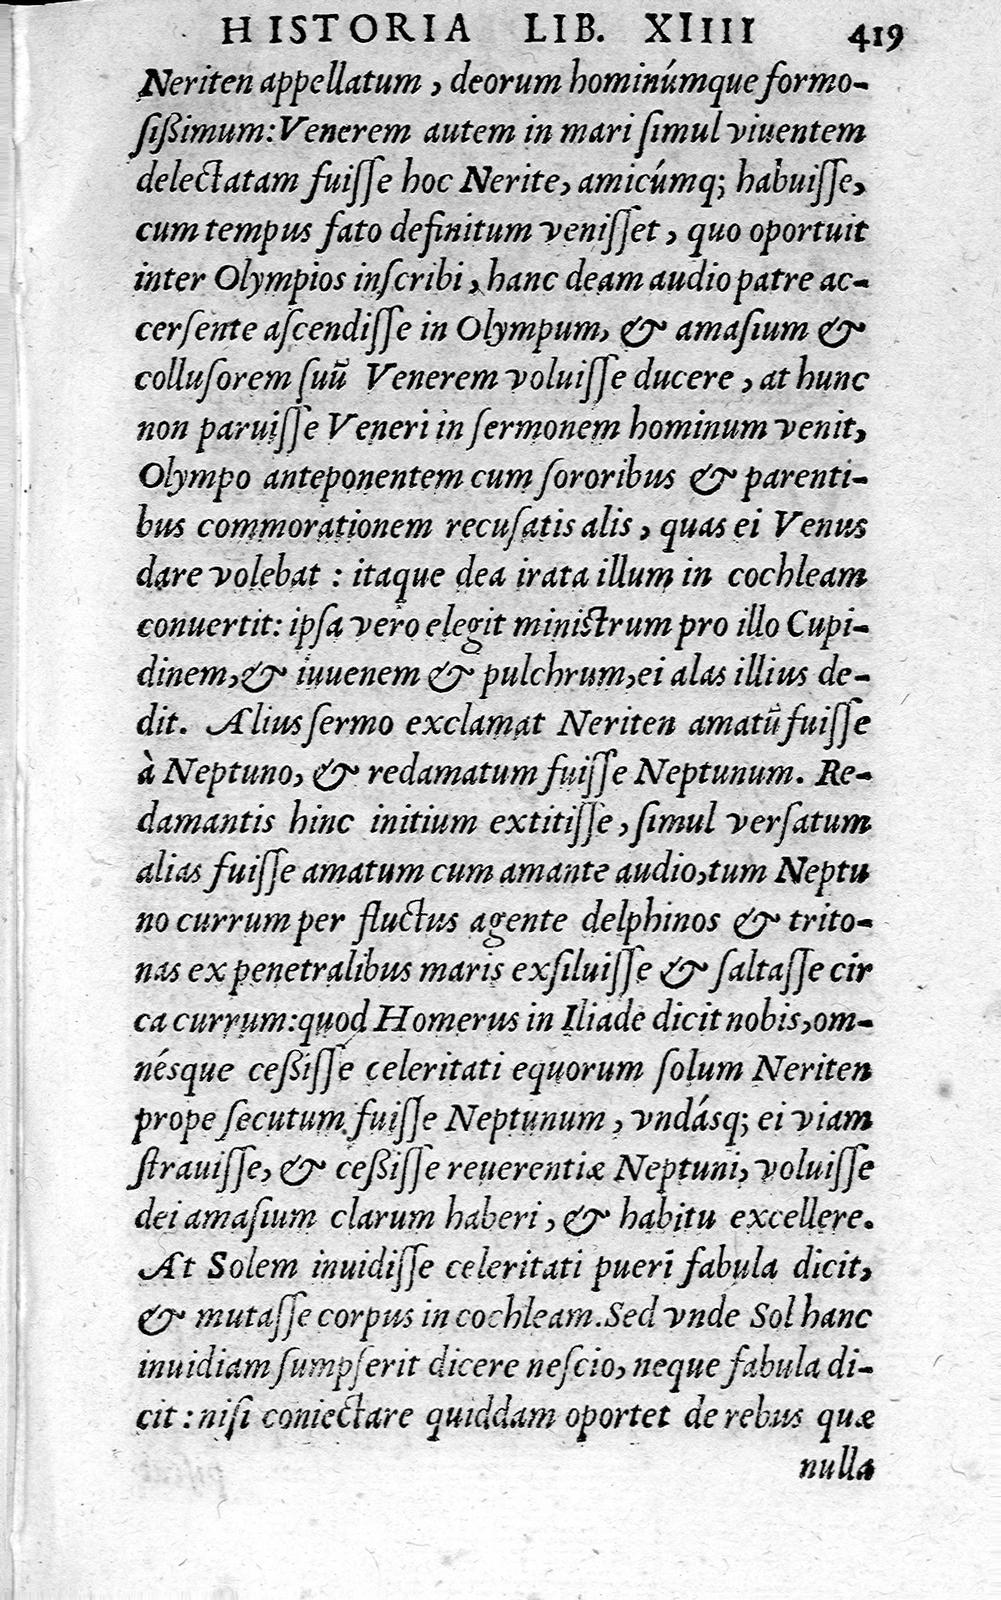 HISTORIA LIB. XIIII 419
Neriten appellatum, deorum hominúmque formo-
sißimum: Venerem autem in mari simul viuentem
delectatam fuisse hoc Nerite, amicúmq; habuisse,
cum tempus fato definitum venisset, quo oportuit
inter Olympios inscribi, hanc deam audio patre ac-
cersente ascendisse in Olympum, & amasium &
collusorem suũ Venerem voluisse ducere, at hunc
non paruisse Veneri in sermonem hominum venit,
Olympo anteponentem cum sororibus & parenti-
bus commorationem recusatis alis, quas ei Venus
dare volebat : itaque dea irata illum in cochleam
conuertit: ipsa vero elegit ministrum pro illo Cupi-
dinem, & iuuenem & pulchrum, ei alas illius de-
dit. Alius sermo exclamat Neriten amatũ fuisse
à Neptuno, & redamatum fuisse Neptunum. Re-
damantis hinc initium extitisse, simul versatum
alias fuisse amatum cum amante audio, tum Neptu
no currum per fluctus agente delphinos & trito-
nas ex penetralibus maris exsiluisse & saltasse cir
ca currum: quod Homerus in Iliade dicit nobis, om-
nésque ceßisse celeritati equorum solum Neriten
prope secutum fuisse Neptunum, vndásq; ei viam
strauisse, & ceßisse reuerentiæ Neptuni, voluisse
dei amasium clarum haberi, & habitu excellere.
At Solem inuidisse celeritati pueri fabula dicit,
& mutasse corpus in cochleam. Sed vnde Sol hanc
inuidiam sumpserit dicere nescio, neque fabula di-
cit : nisi coniectare quiddam oportet de rebus quæ
nulla